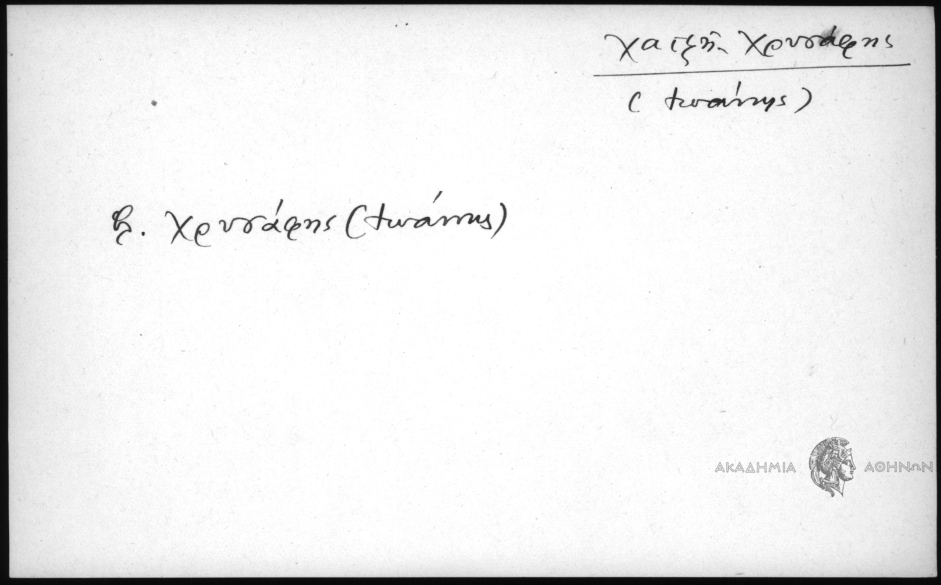 Χατζῆ-Χρυσάφης
(Ἰωάννης)
βλ. Χρυσάφης (Ἰωάννης)
ΑΚΑΔΗΜΙΑ ΑΘΗΝΩΝ